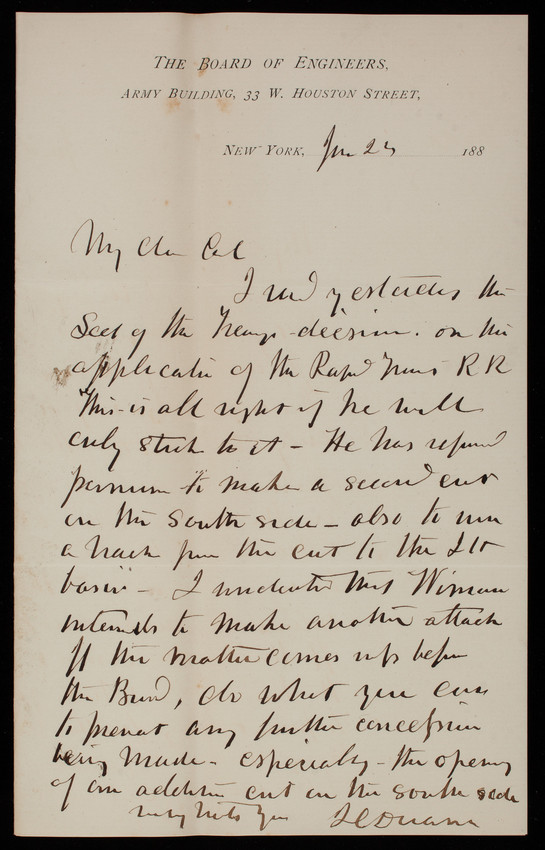 THE BOARD OF ENGINEERS,
ARMY BUILDING, 33 W. HOUSTON STREET,
NEW YORK, 188
My dear Col
I read yesterday the
Secy of the Treasy decision on the
application of the Rapid Trans R R
This is all right if he will
only stick to it - He has refused
permission to make a second cut
on the South side - also to run
a track from the cut to the
basin - I understand that Wiman
intends to make another attack
If the matter comes up before
the Board, do what you can
to prevent any further concession
being made - especially - the opening
of an additn cut on the south side
very truly yrs J C Duane